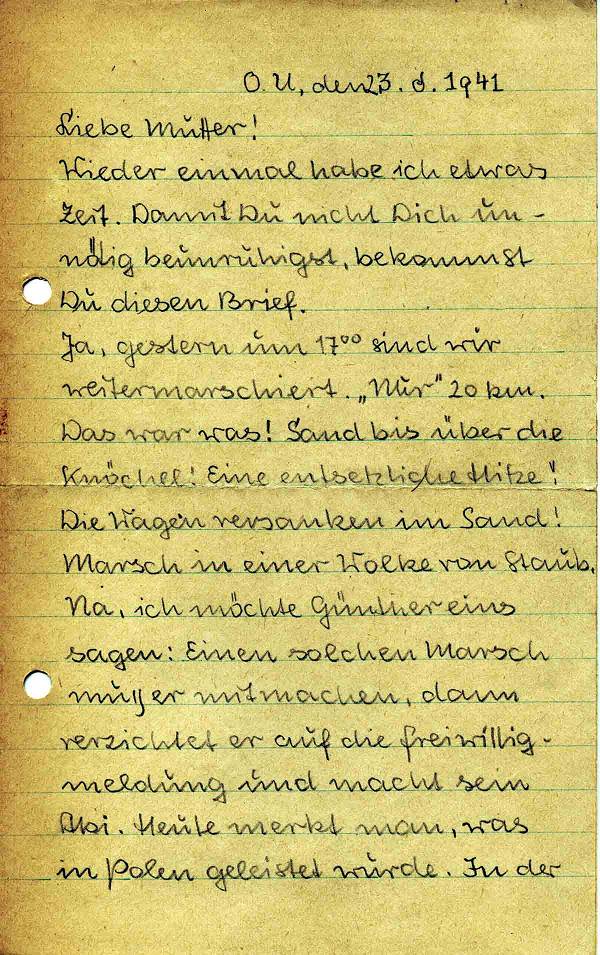 O.U., den 23. 6. 1941
Liebe Mutter!
Wieder einmal habe ich etwas
Zeit. Damit Du nicht Dich un-
nötig beunruhigst, bekommst
Du diesen Brief.
Ja, gestern um 17⁰⁰ sind wir
weitermarschiert. „Nur“ 20 km.
Das war was! Sand bis über die
Knöchel! Eine entsetzliche Hitze!
Die Wagen versanken im Sand!
Marsch in einer Wolke von Staub.
Na, ich möchte Günther eins
sagen: Einen solchen Marsch
muß er mitmachen, dann
verzichtet er auf die freiwillig-
meldung und macht sein
Abi. Heute merkt man, was
in Polen geleistet wurde. In der